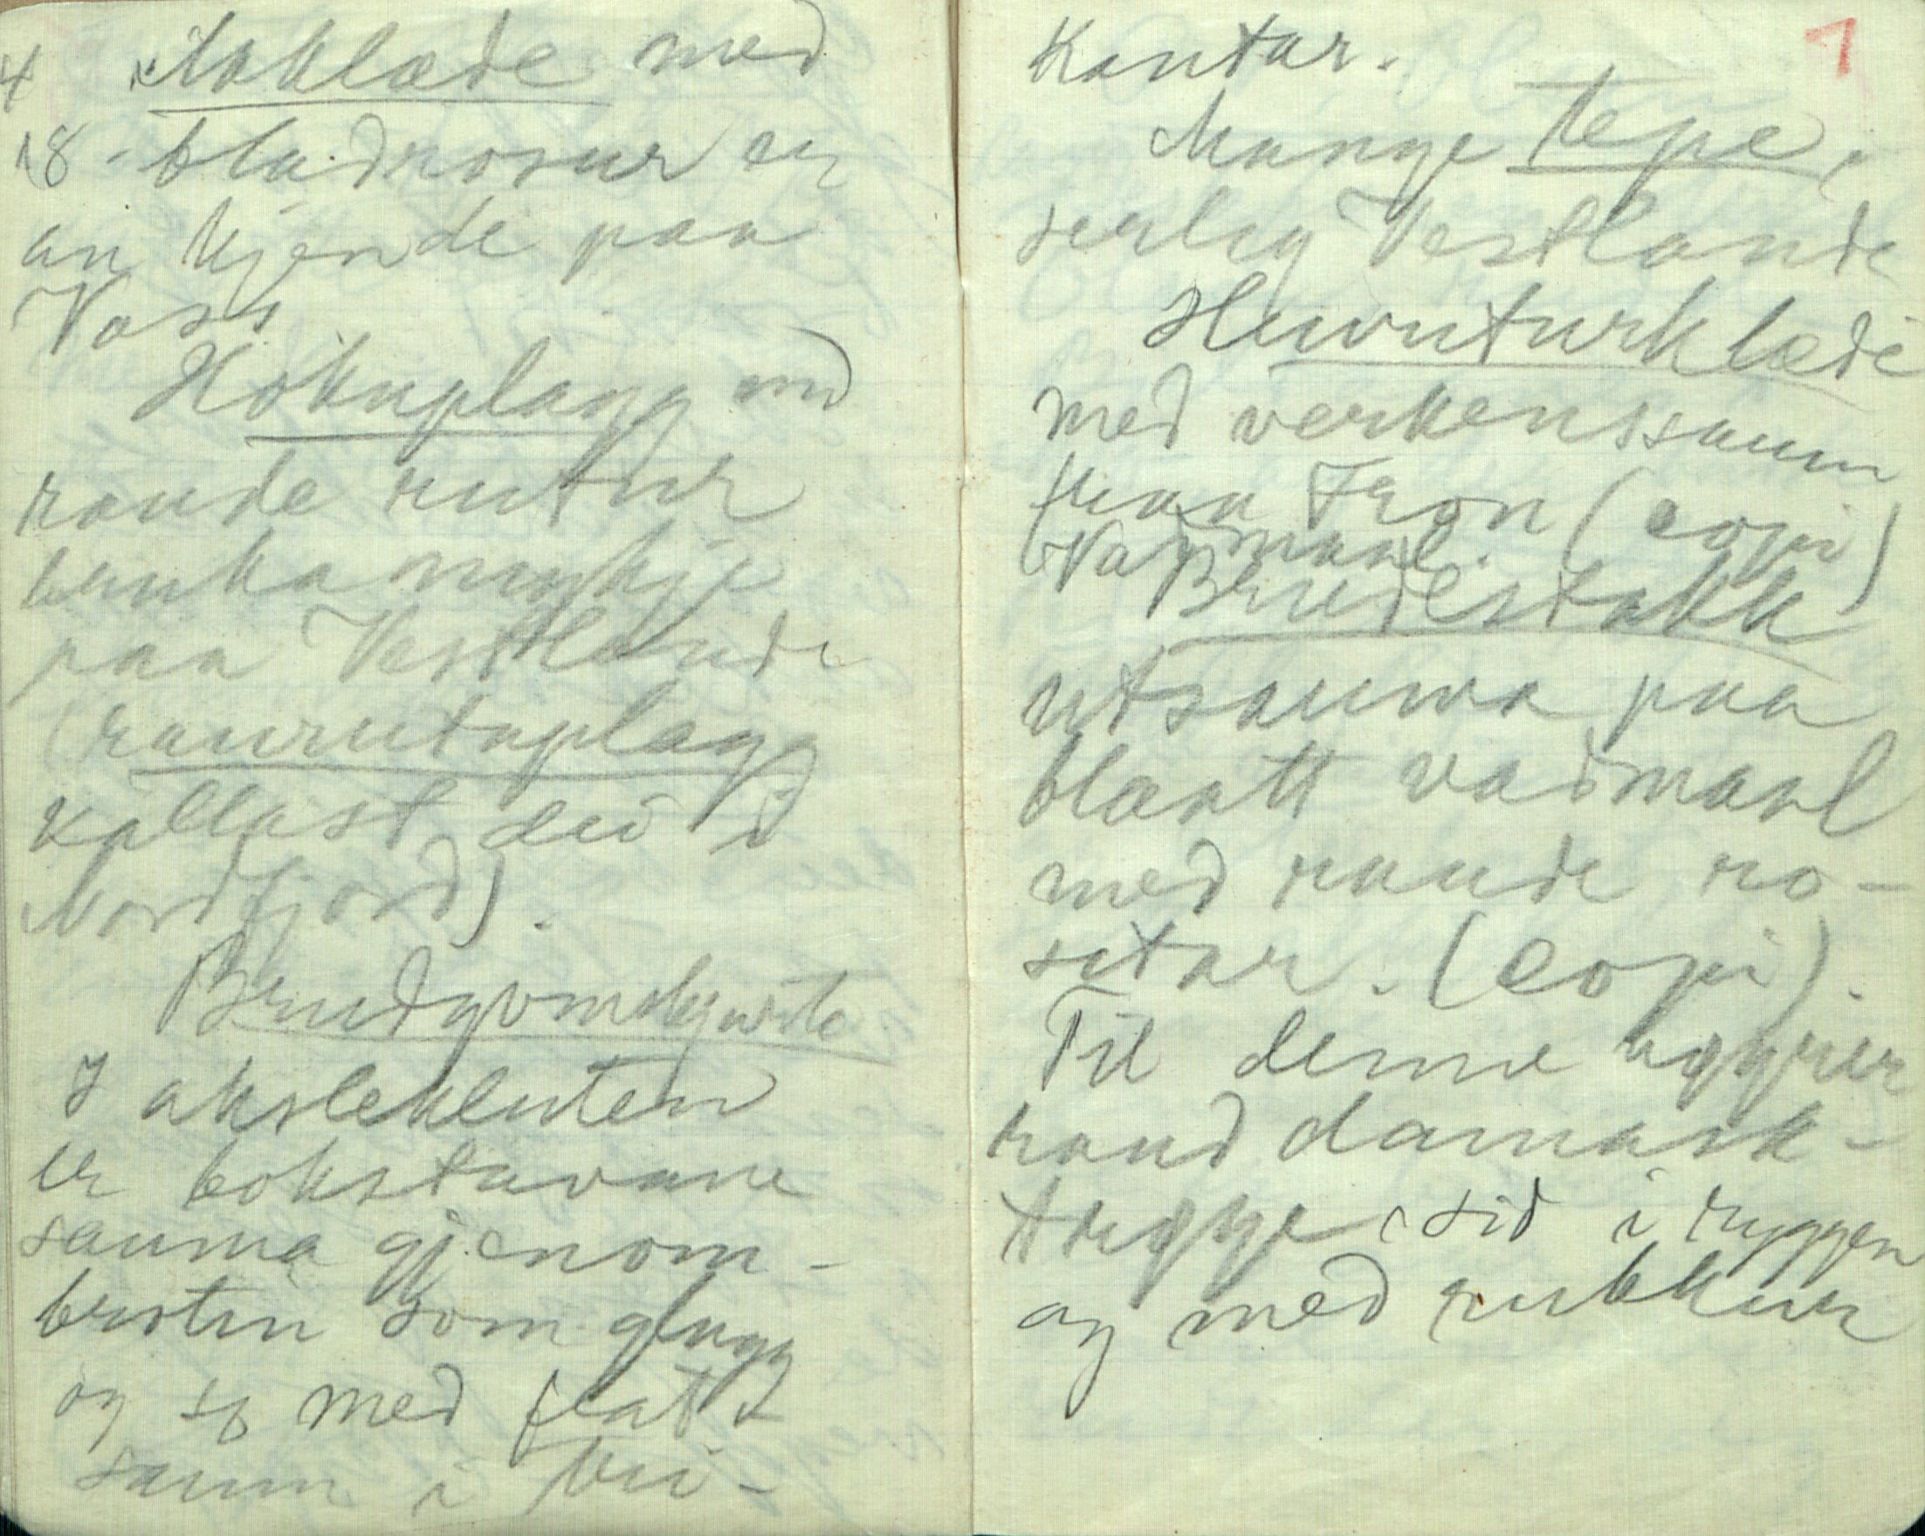 4 Aaklæde med
18-bladrosur er
an kjende paa
Voss.
Hokuplagg med
raude rutur
bruka mykje
paa Vestlande
(raurutuplagg
kallast dei i
Nordfjord).
Brudgomskjurte
I akslekluten
er bokstavane
sauma gjenom-
broten som glugg
og so med flatt
saum i kri-
1
Kantar.
Mange tepe,
serleg Vestlande
Huvuturklæde
med verkenssaum
fraa Fron (copi)
(Vadmaal.
Brudestakk
utsauma paa
blaatt vadmaal
med raude ro-
setar. (copi).
Til denne høyrer
raud damask-
trøye, sid i ryggen
og med rukkur